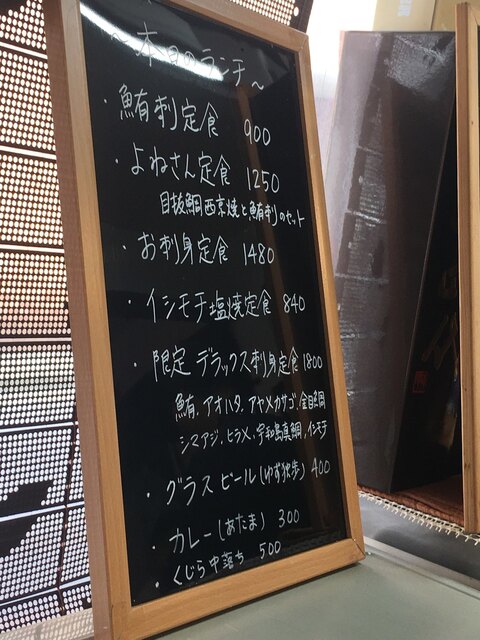 ~本日のランチ~
・鮪刺定食 900
・よねさん定食 1250
目抜鯛西京焼と鮪刺のセット
・お刺身定食 1480
・イシモチ塩焼定食 840
・限定デラックス刺身定食 1800
鮪、アオハタ、アヤメカサゴ、金目鯛
シマアジ、ヒラメ、宇和島真鯛、イシモチ
・グラスビール(ゆず独歩) 400
・カレー(あたま) 300
・くじら中落ち 500